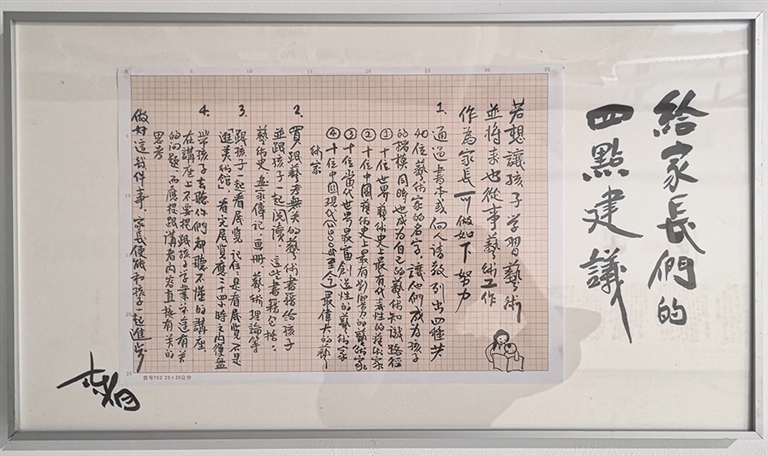 給家長們的
四點建議
若想讓孩子学習藝術
並將来也從事藝術工作
作為家長可做如下努力
1. 通過書本或向人請教列出四種共
40位藝術家的名字,讓他們成為孩子
的楷模同時也成為自己的藝術知識路徑
① 十位世界藝術史上最有代表性的藝術家
② 十位中國藝術史上最有的藝術家
③ 十位当代世界最富創造性的藝術家
④ 十位中国現代(1900年至今)最偉大的藝
術家
2. 買跟藝考無关的藝術書籍给孩子
並跟孩子一起阅讀,这些書籍包括:
藝術史、傳記、画冊、藝術理論等
3. 跟孩子一起看展览,記住:是看展览,不是
逛美術館,看完展览應二十四小時之内復盘
4. 帶孩子去聽你們都聽不懂的講座、
在講座上不要提跟孩子学業有关
的问题,而應提跟講者内容直接有关的
思考
做好這幾件事,家長便能和孩子一起進步
0 5 10 15 20 25 30 35
25×35公分